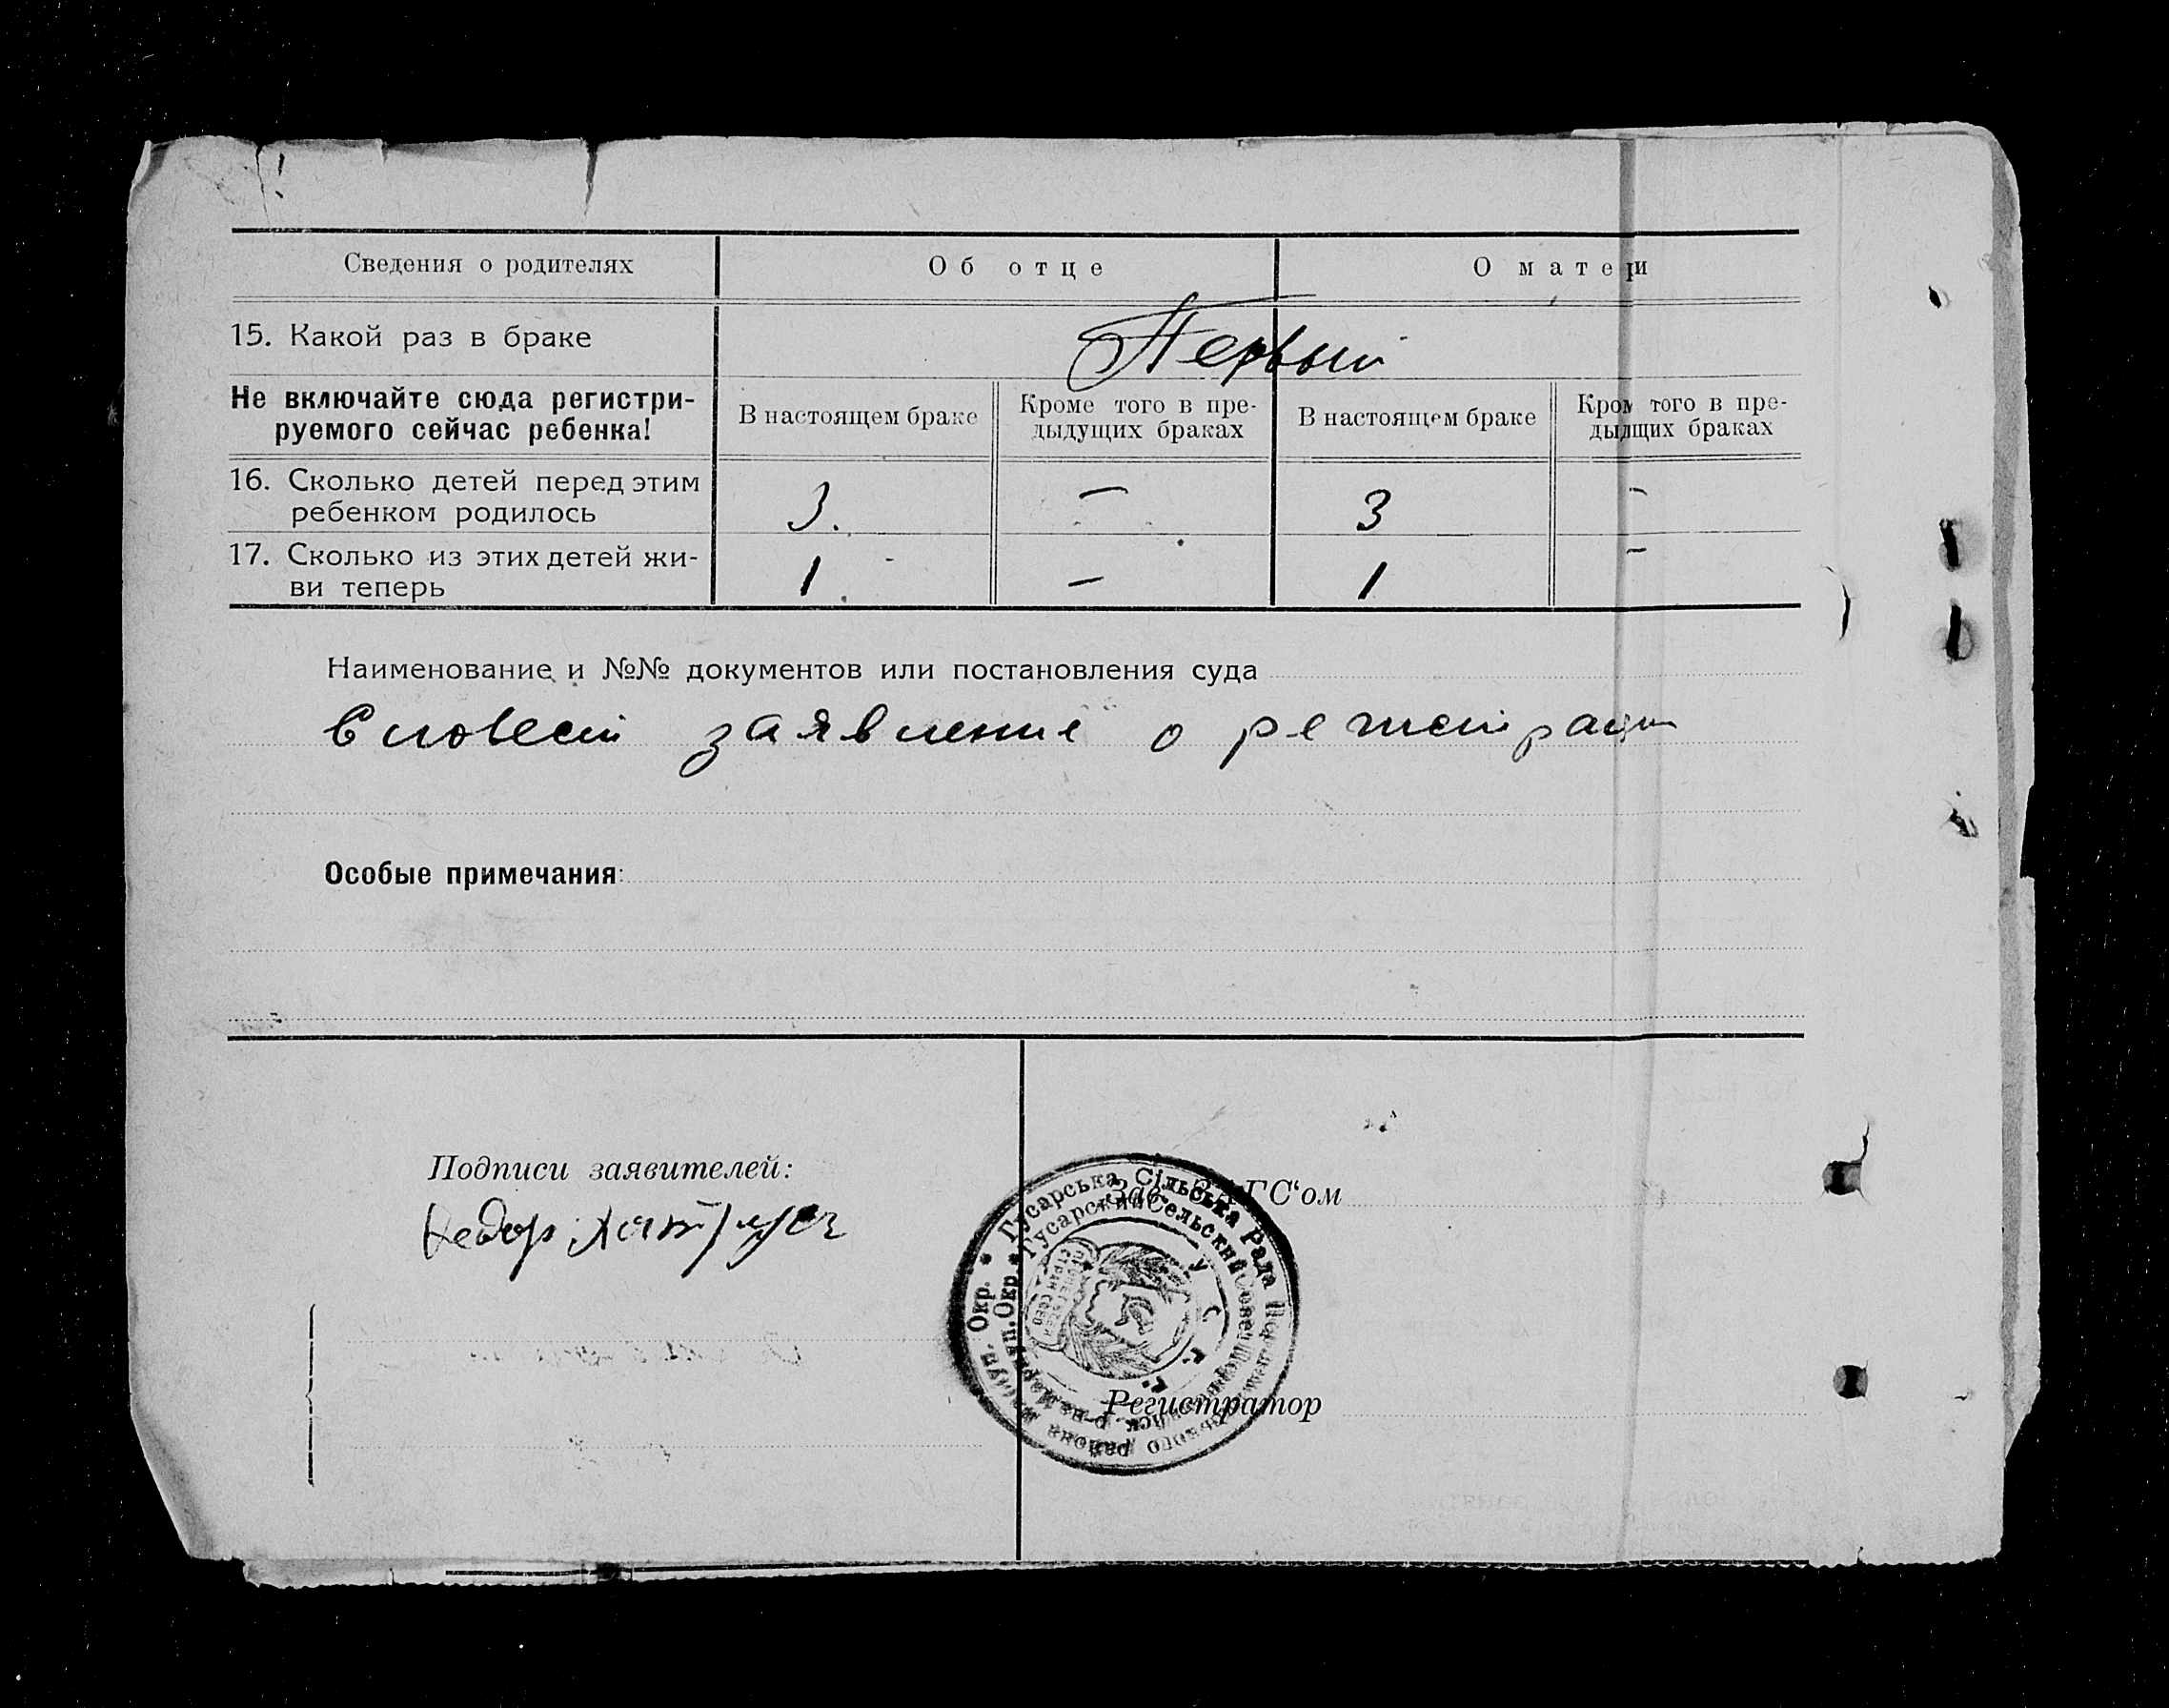 Сведения о родителях Об отце О матери
15. Какой раз в браке Первый
Не включайте сюда регистри-
руемого сейчас ребенка!
В настоящем браке
Кроме того в пре-
дыдущих браках
В настоящем браке
Кром того в пре-
дыдщих браках
16. Сколько детей перед этим
ребенком родилось 3. — 3 —
17. Сколько из этих детей жи-
ви теперь 1. — 1 —
Наименование и №№ документов или постановления суда
Словесн заявление о регистрации
Особые примечания:
Подписи заявителей:
Федор
Зав. ЗАГС‘ом
Регистратор
Гусарська Сільська Рада района Окр.
Гусарский Сельский р-на Окр.
У С Р Р